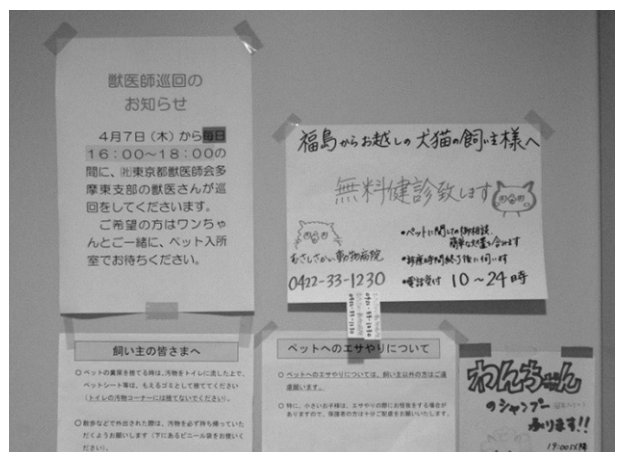 獣医師巡回の
お知らせ
4月7日(木)から毎日
16:00~18:00の
間に、㈳東京都獣医師会多
摩東支部の獣医さんが巡
回をしてくださいます。
ご希望の方はワンちゃ
んとご一緒に、ペット入所
室でお待ちください。
福島からお越しの犬猫の飼い主様へ
無料健診致します
むさしさかい動物病院
0422-33-1230
•ペットに関しての御相談、
簡単な処置も含みます
•診療時間終了後に伺います
•電話受付 10~24時
飼い主の皆さまへ
○ペットの糞尿を捨てる時は、汚物をトイレに流した上で、
ペットシート等は、もえるゴミとして捨ててください
(トイレの汚物コーナーには捨てないでください)。
○散歩などで外出された際は、汚物を必ず持ち帰っていた
だくようお願いします(下にあるビニール袋をお使いく
ださい)。
ペットへのエサやりについて
○ペットへのエサやりについては、飼い主以外の方はご遠
慮願います。
○特に、小さいお子様は、エサやりの際にお怪我をする場合が
ありますので、保護者の方は十分ご配慮をお願いいたします。
わんちゃん
のシャンプー
承ります!!
19:00以降